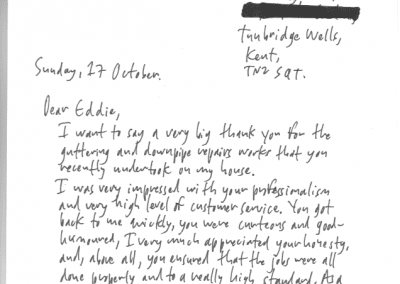 Tunbridge Wells,
Kent,
TN2 5QT.
Sunday, 17 October.
Dear Eddie,
I want to say a very big thank you for the
guttering and downpipe repairs works that you
recently undertook on my house.
I was very impressed with your professionalism
and very high level of customer service. You got
back to me quickly, you were curteous and good-
humoured, I very much appreciated your honesty,
and, above all, you ensured that the jobs were all
done properly and to a really high standard. As a